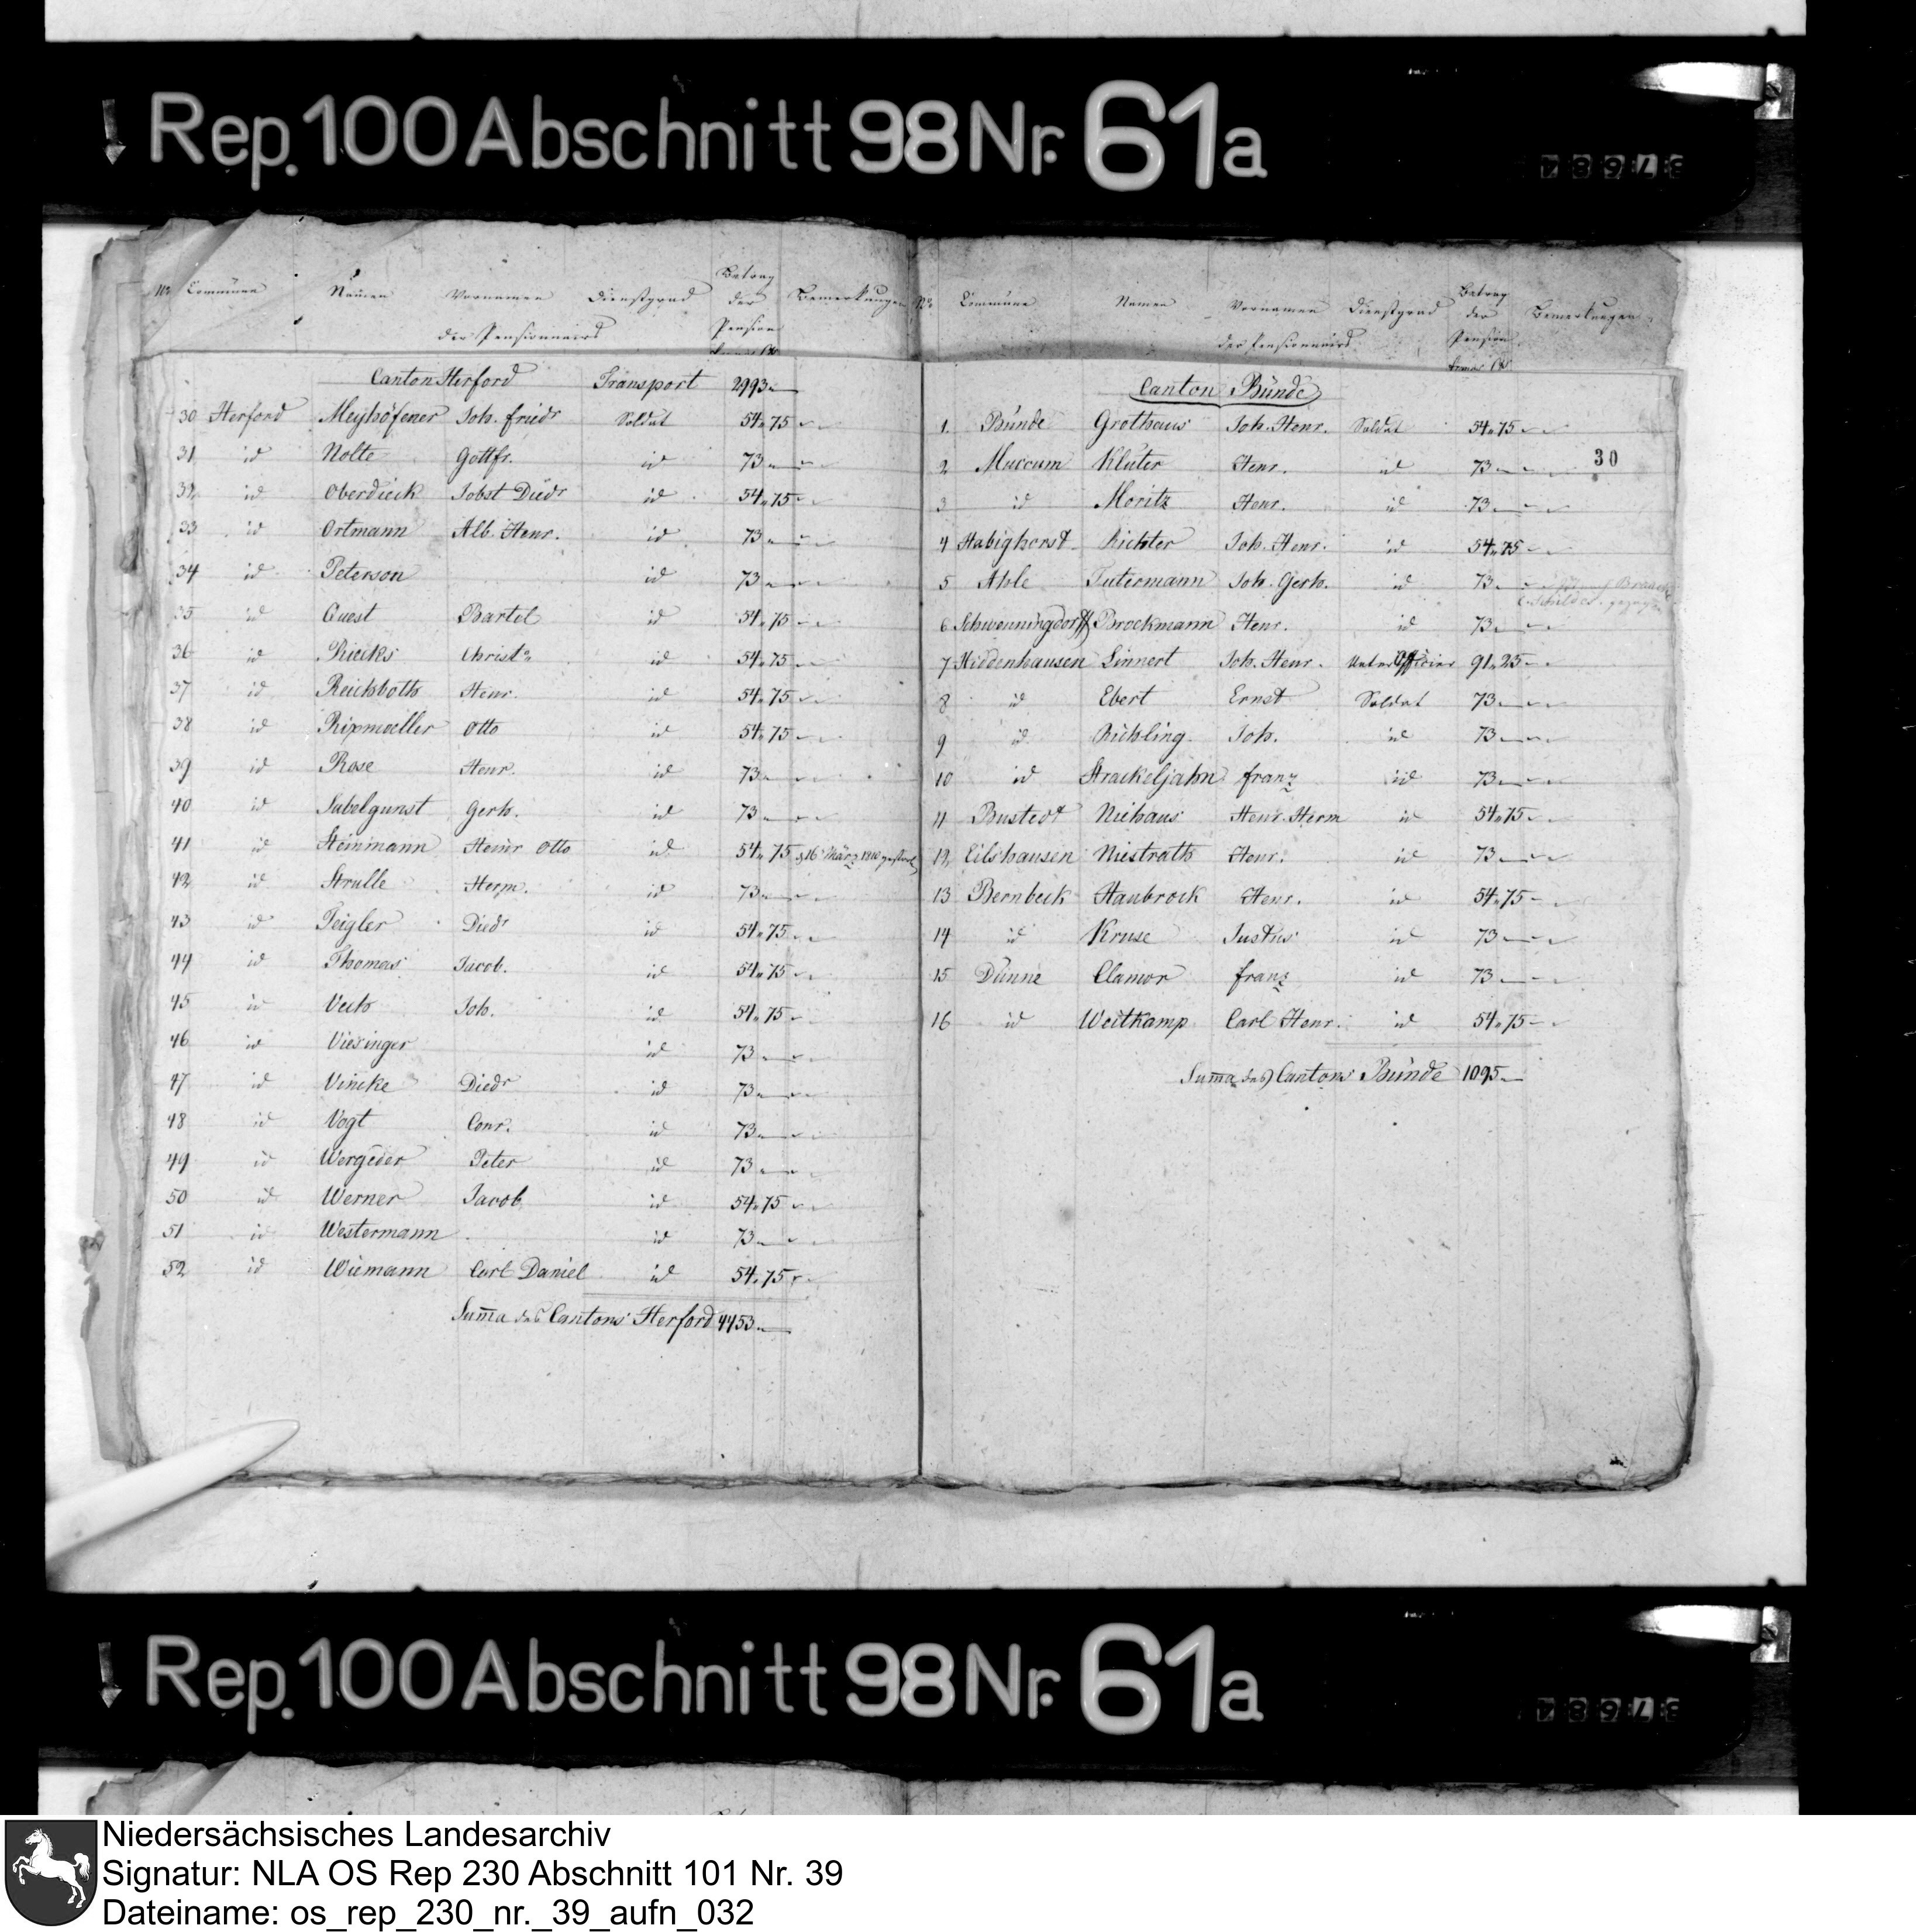 Rep. 100 Abschnitt 98 Nr. 61a
37684
No Commune Namen Vornamen Dienstgrad Betrag der Pension Bemerkungen
der Pensionnairs
Canton Herford Transport 2993
30 Herford Meyhöfener Joh. Friedr Soldat 54 75
31 id Nolte Gottfr. id 73
32 id Oberdieck Jobst Diedr id 54 75
33 id Ortmann Alb. Henr. id 73
34 id Peterson id 73
35 id Quest Bartel id 54 75
36 id Riecks Christn id 54 75
37 id Reickboth Henr. id 54 75
38 id Ripmoeller Otto id 54 75
39 id Rose Henr. id 73
40 id Sabelgunst Gerh. id 73
41 id Steinmann Heinr Otto id 54 75 d 16 März 1810 gestorb
42 id Strulle Herm. id 73
43 id Teigler Diedr id 54 75
44 id Thomas Jacob. id 54 75
45 id Veith Joh. id 54 75
46 id Viesinger id 73
47 id Vincke Diedr id 73
48 id Vogt Conr. id 73
49 id Wergeder Peter id 73
50 id Werner Jacob id 54 75
51 id Westermann id 73
52 id Wiemann Carl Daniel id 54 75
Suma des Cantons Herford 4453
No Commune Namen Vornamen Dienstgrad Betrag der Pension Bemerkungen
der Pensionnairs
Canton Bünde
1. Bünde Grothaus Joh. Henr. Soldat 54 75
30
2 Muccum Klüter Henr. id 73
3 id Moritz Henr. id 73
4 Habighorst Richter Joh. Henr. id 54 75
5 Ahle Tutermann Joh. Gerh. id 73
6 Schwenningdorff Brockmann Henr. id 73
7 Hiddenhausen Linnert Joh. Henr. Unter Officier 91 25
8 id Ebert Ernst Soldat 73
9 id Richling Joh. id 73
10 id Strackeljahn Franz id 73
11 Bustedt Niehaus Henr. Herm id 54 75
12 Eilshausen Niestrath Henr. id 73
13 Bernbeck Hanbrock Henr. id 54 75
14 id Kruse Justus id 73
15 Dünne Clamor Franz id 73
16 id Weitkamp Carl Henr. id 54 75
Suma des Cantons Bünde 1095
Rep. 100 Abschnitt 98 Nr. 61a
37684
Niedersächsisches Landesarchiv
Signatur: NLA OS Rep 230 Abschnitt 101 Nr. 39
Dateiname: os_rep_230_nr._39_aufn_032